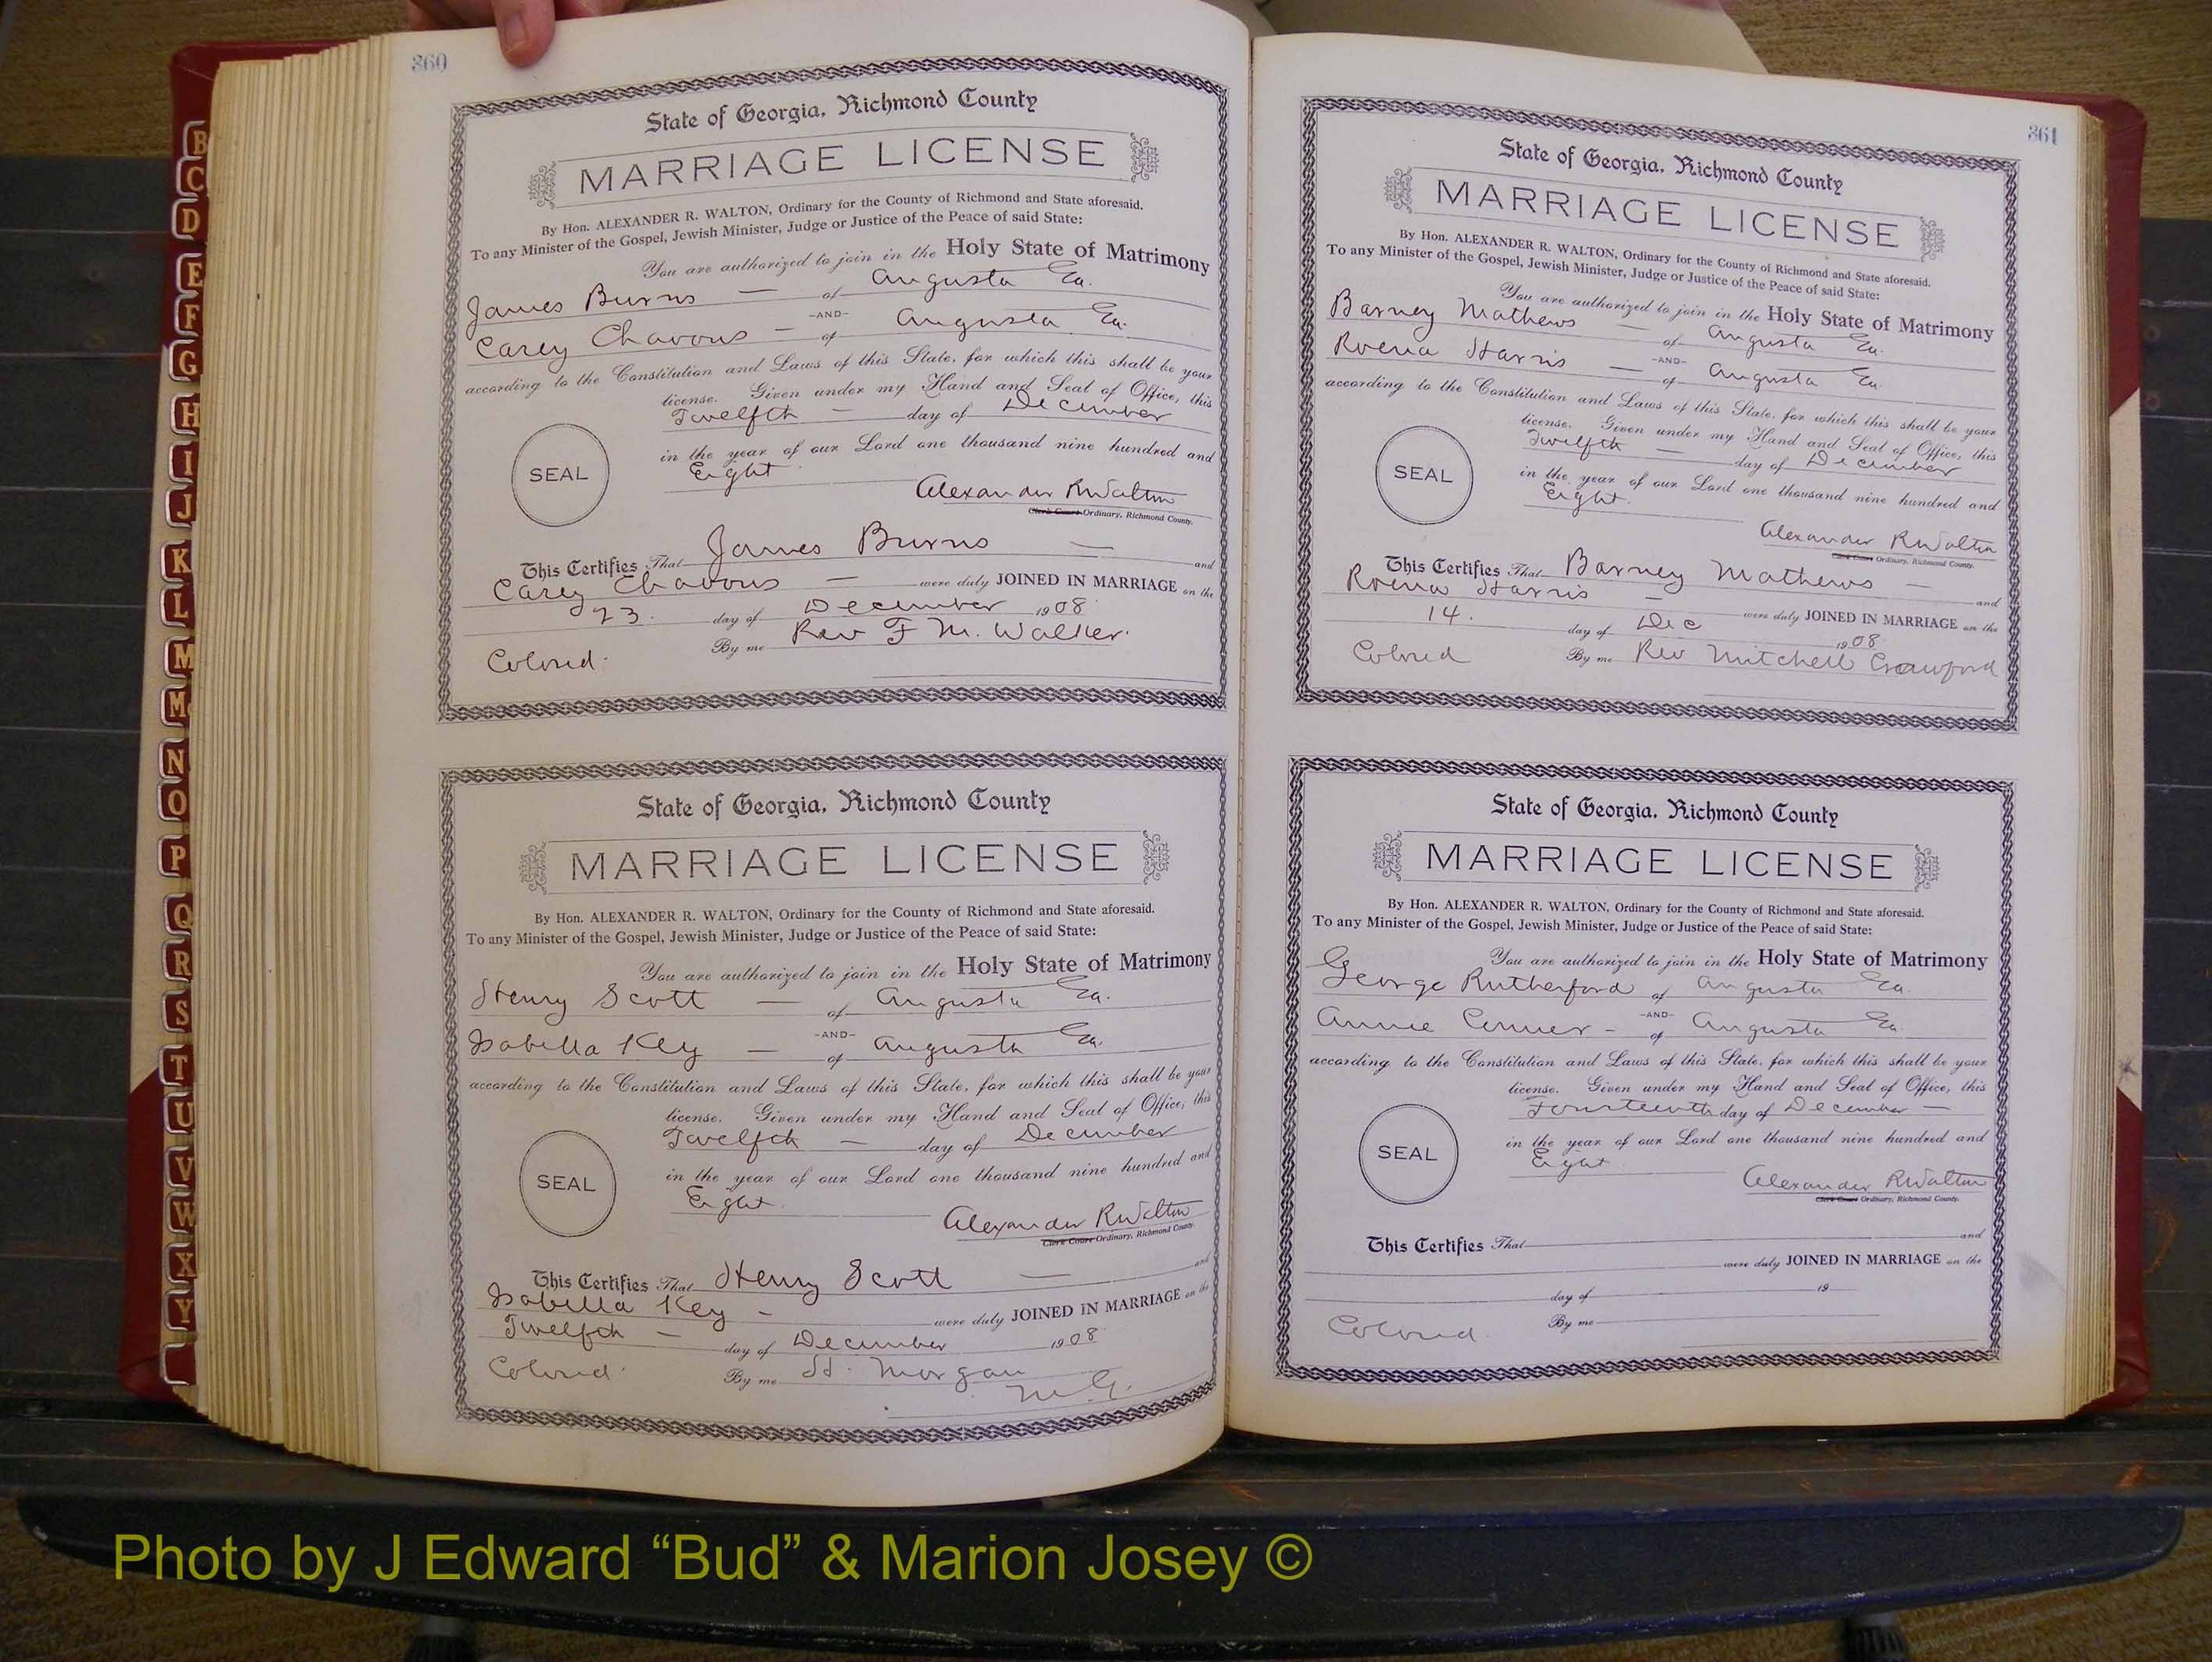 360
State of Georgia, Richmond County
MARRIAGE LICENSE
By Hon. ALEXANDER R. WALTON, Ordinary for the County of Richmond and State aforesaid.
To any Minister of the Gospel, Jewish Minister, Judge or Justice of the Peace of said State:
You are authorized to join in the Holy State of Matrimony
James Burns — of Augusta Ga.
-AND-
Carey Chavous — of Augusta Ga.
according to the Constitution and Laws of this State, for which this shall be your
license. Given under my Hand and Seal of Office, this
Twelfth — day of December
in the year of our Lord one thousand nine hundred and
Eight
SEAL
Alexander R Walton
Clerk Court Ordinary, Richmond County.
This Certifies That James Burns — and
Carey Chavous — were duly JOINED IN MARRIAGE on the
23. day of December 1908
Colored. By me Rev F M. Walker.
State of Georgia, Richmond County
MARRIAGE LICENSE
By Hon. ALEXANDER R. WALTON, Ordinary for the County of Richmond and State aforesaid.
To any Minister of the Gospel, Jewish Minister, Judge or Justice of the Peace of said State:
You are authorized to join in the Holy State of Matrimony
Henry Scott — of Augusta Ga.
-AND-
Isabella Key — of Augusta Ga.
according to the Constitution and Laws of this State, for which this shall be your
license. Given under my Hand and Seal of Office, this
Twelfth — day of December
in the year of our Lord one thousand nine hundred and
Eight.
SEAL
Alexander R Walton
Clerk Court Ordinary, Richmond County.
This Certifies That Henry Scott — and
Isabella Key - were duly JOINED IN MARRIAGE on the
Twelfth — day of December 1908
Colored. By me H. Morgan
M.G.
361
State of Georgia, Richmond County
MARRIAGE LICENSE
By Hon. ALEXANDER R. WALTON, Ordinary for the County of Richmond and State aforesaid.
To any Minister of the Gospel, Jewish Minister, Judge or Justice of the Peace of said State:
You are authorized to join in the Holy State of Matrimony
Barney Mathews — of Augusta Ga.
-AND-
Roena Harris — of Augusta Ga.
according to the Constitution and Laws of this State, for which this shall be your
license. Given under my Hand and Seal of Office, this
Twelfth — day of December
in the year of our Lord one thousand nine hundred and
Eight.
SEAL
Alexander R Walton
Clerk Court Ordinary, Richmond County.
This Certifies That Barney Mathews — and
Roena Harris — were duly JOINED IN MARRIAGE on the
14. day of Dec 1908
Colored By me Rev Mitchell Crawford
State of Georgia, Richmond County
MARRIAGE LICENSE
By Hon. ALEXANDER R. WALTON, Ordinary for the County of Richmond and State aforesaid.
To any Minister of the Gospel, Jewish Minister, Judge or Justice of the Peace of said State:
You are authorized to join in the Holy State of Matrimony
George Rutherford of Augusta Ga.
-AND-
Annie - of Augusta Ga.
according to the Constitution and Laws of this State, for which this shall be your
license. Given under my Hand and Seal of Office, this
Fourteenth day of December —
in the year of our Lord one thousand nine hundred and
Eight.
SEAL
Alexander R Walton
Clerk Court Ordinary, Richmond County.
This Certifies That and
were duly JOINED IN MARRIAGE on the
day of 19
Colored. By me
B
C
D
E
F
G
H
I
J
K
L
M
M
N
O
P
Q
R
S
T
U
V
W
X
Y
Photo by J Edward “Bud” & Marion Josey ©